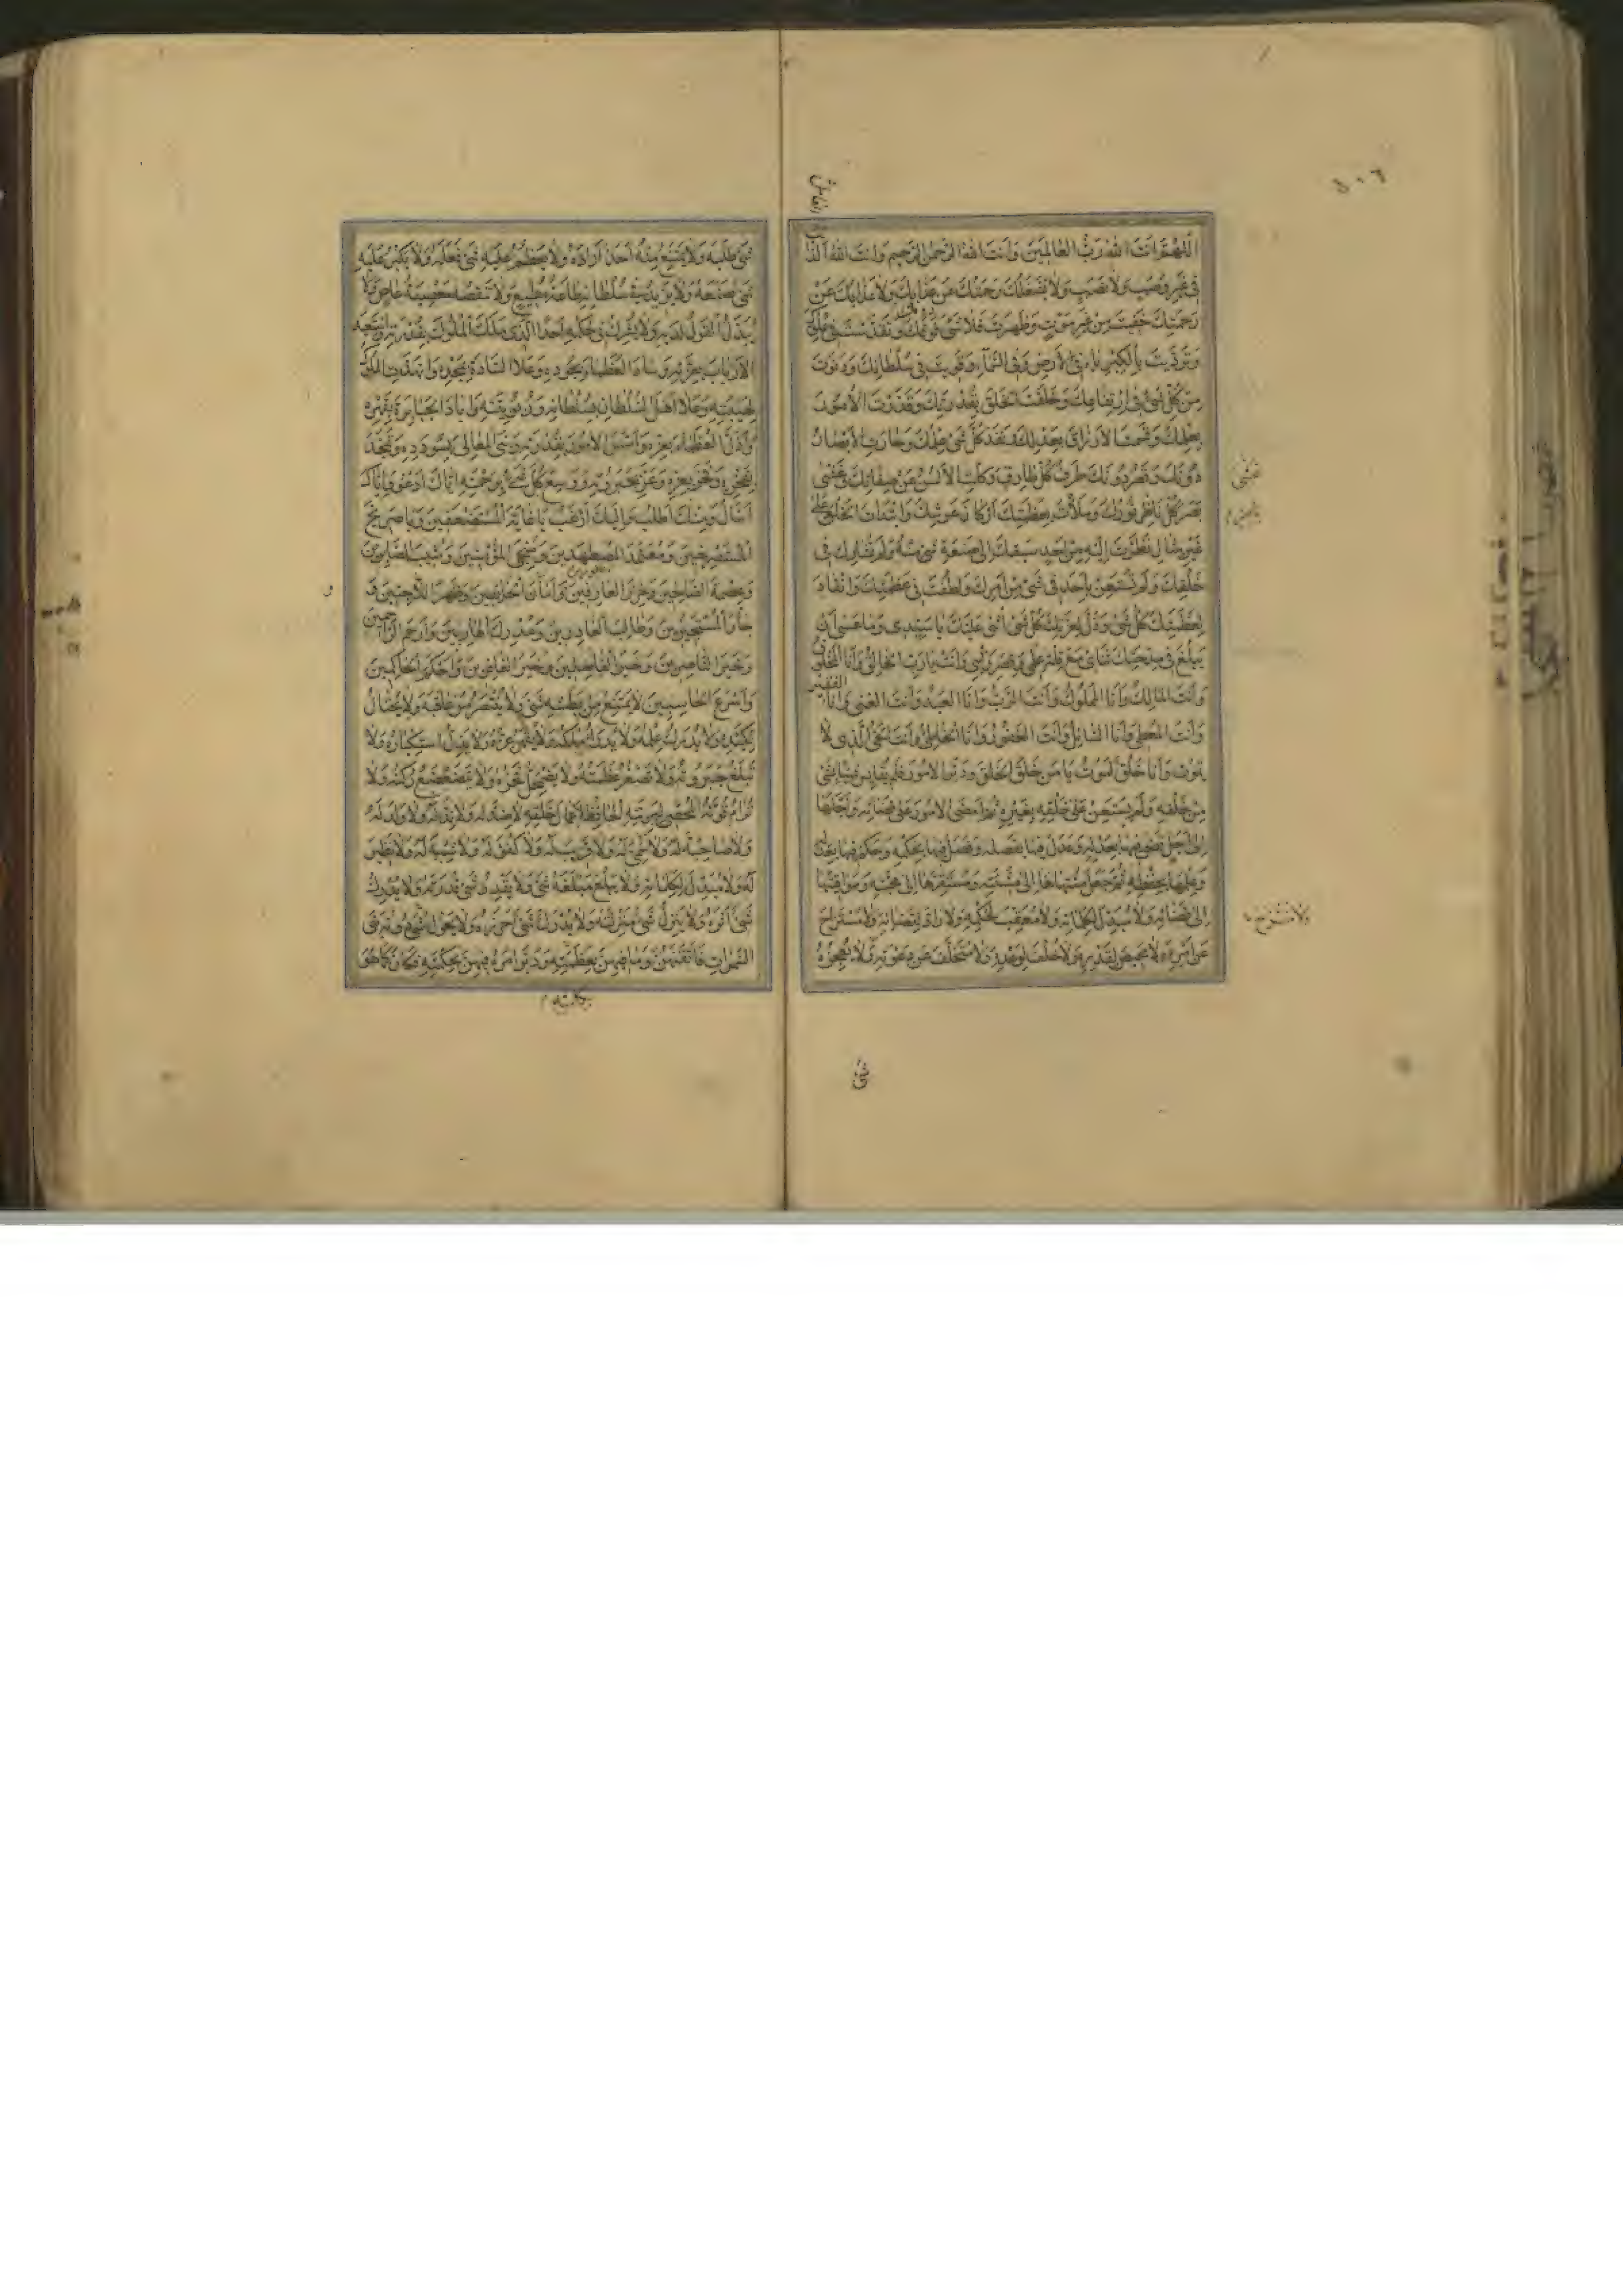 ٥٠٦
اللهم انت الله رب العالمين وانت الله الرحمن الرحيم وانت الله
في غير وصب ولا نصب ولا يشغلك رحمتك عن عذابك ولا عذابك عن
رحمتك خفيت من غير موت وظهرت فلا شيء فوقك وتقدست في علوك
وترديت بالكبرياء في الأرض وفي السماء وقويت في سلطانك ودنوت
من كل شيء في ارتفاعك وخلقت الخلق بقدرتك وقدرت الأمور
بعلمك وقسمت الأرزاق بعدلك ونفذ كل شيء علمك وحارت الأبصار
دونك وقصر دونك طرف كل طارف وكلت الألسن عن صفاتك وغشي
بصر كل ناظر نورك وملأت بعظمتك أركان عرشك وابتدأت الخلق على
غير مثال نظرت إليه من أحد سبقك إلى صنعة شيء منه ولم تشارك في
خلقك ولم تستعن بأحد في شيء من أمرك ولطفت في عظمتك وانقاد
لعظمتك كل شيء وذل لعزك كل شيء أثني عليك يا سيدي وما عسى أن
يبلغ في مدحتك ثنائي مع قلة علمي وقصر رأيي وأنت يا رب الخالق وأنا المخلوق
وأنت المالك وأنا المملوك وأنت الرب وأنا العبد وأنت الغني وأنا الفقير
وأنت المعطي وأنا السائل وأنت الغفور وأنا الخاطئ وأنت الحي الذي لا
يموت وأنا خلق أموت يا من خلق الخلق ودبر الأمور فلم يقايس شيئا بشيء
من خلقه ولم يستعن على خلقه بغيره ثم أمضى الأمور على قضائه وأجلها
إلى أجل قضى فيها بعدله وعدل فيها بفصله وفصل فيها بحكمه وحكم فيها بعدله
وعلمها بحفظه ثم جعل منتهاها إلى مشيته ومستقرها إلى محبته ومواقيتها
إلى قضائه ولا مبدل لكلماته ولا معقب لحكمه ولا راد لقضائه ولا مستراح
عن أمره ولا محيص لقدره ولا خلف لوعده ولا متخلف عن دعوته ولا يعجزه
شيء
شيء طلبه ولا يمتنع منه أحد أراده ولا يعظم عليه شيء فعله ولا يكبر عليه
شيء صنعه ولا يزيد في سلطانه طاعة مطيع ولا تنقصه معصية عاص ولا
يبدل القول لديه ولا يشرك في حكمه أحدا الذي ملك الملوك بقدرته واستعبد
الأرباب بعزته وساد العظماء بجوده وعلا السادة بمجده وانهدت الملوك
لهيبته وعلا أهل السلطان بسلطانه وربوبيته وأباد الجبابرة بقهره
وأذل العظماء بعزه وأسس الأمور بقدرته وبنى المعالي بسؤدده وتمجد
بفخره وفخر بعزه وعز بجبروته ووسع كل شيء برحمته إياك أدعو وإياك
أسأل ومنك أطلب وإليك أرغب يا غاية المستضعفين ويا صريخ
المستصرخين ومعتمد المضطهدين ومنجي المؤمنين ومثيب الصابرين
وعصمة الصالحين وحرز العارفين وأمان الخائفين وظهر اللاجئين و
جار المستجيرين وطالب الغادرين ومدرك الهاربين وأرحم الراحمين
وخير الناصرين وخير الفاصلين وخير الغافرين وأحكم الحاكمين
وأسرع الحاسبين لا يمتنع من بطشه شيء ولا ينتصر من عاقبه ولا يحتال
لكيده ولا يدرك علمه ولا يدرأ ملكه ولا يقهر عزه ولا يذل استكباره ولا
يبلغ جبروته ولا تصغر عظمته ولا يضمحل فخره ولا يتضعضع ركنه ولا
ترام قوته المحصي لبريته الحافظ أعمال خلقه لا ضد له ولا ند له ولا ولد له
ولا صاحبة له ولا سمي له ولا قريب له ولا كفو له ولا شبيه له ولا نظير
له ولا مبدل لكلماته ولا يبلغ مبلغه شيء ولا يقدر شيء قدرته ولا يدرك
شيء أثره ولا ينزل شيء منزلته ولا يدرك شيء أحرزه ولا يحول شيء دونه بنى
السموات فأتقنهن وما فيهن بعظمته ودبر أمره فيهن بحكمته فكان كما هو